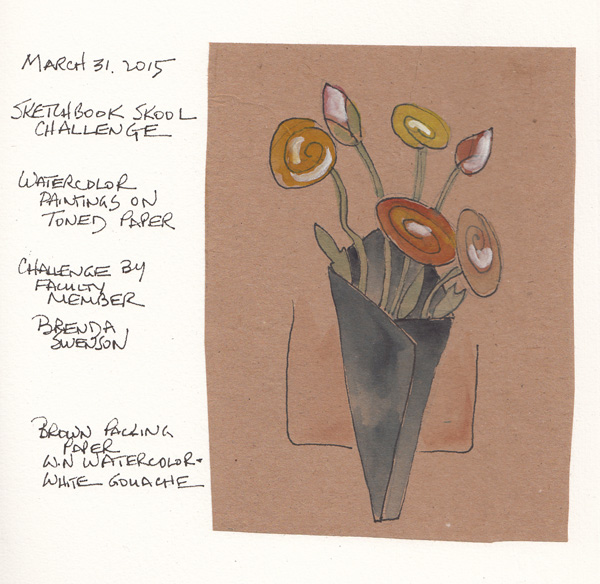 MARCH 31. 2015
SKETCHBOOK SKOOL
CHALLENGE
WATERCOLOR
PAINTINGS ON
TONED PAPER
CHALLENGE BY
FACULTY
MEMBER
BRENDA
SWENSON
BROWN PACKING
PAPER
W.N WATERCOLOR-
WHITE GOUACHE